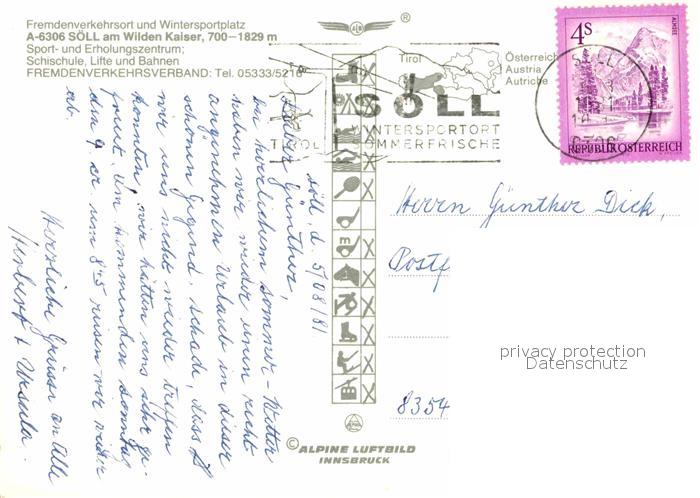 Fremdenverkehrsort und Wintersportplatz
A-6306 SÖLL am Wilden Kaiser, 700—1829 m
Sport- und Erholungszentrum;
Schischule, Lifte und Bahnen
FREMDENVERKEHRSVERBAND: Tel. 05333/5216
®
Tirol
Österreich
Austria
Autriche
SÖLL
WINTERSPORTORT
TIROL SOMMERFRISCHE
4S
ALMSEE
REPUBLIK ÖSTERREICH
SÖLL
Söll d. 5/08/81.
Lieber Günther,
bei herrlichem Sommer-Wetter
haben wir wieder einen recht
angenehmen Urlaub in dieser
schönen Gegend. Schade, dass
wir uns nicht wieder treffen
konnten, wir hatten uns sehr ge-
freut. Am kommenden Sonntag
den 9er um 845 reisen wir wieder
ab.
Herzliche Grüsse an Alle
Herbert + Ursula.
Herrn Günther Dick,
Postf
8354
privacy protection
Datenschutz
© ALPINE LUFTBILD
INNSBRUCK